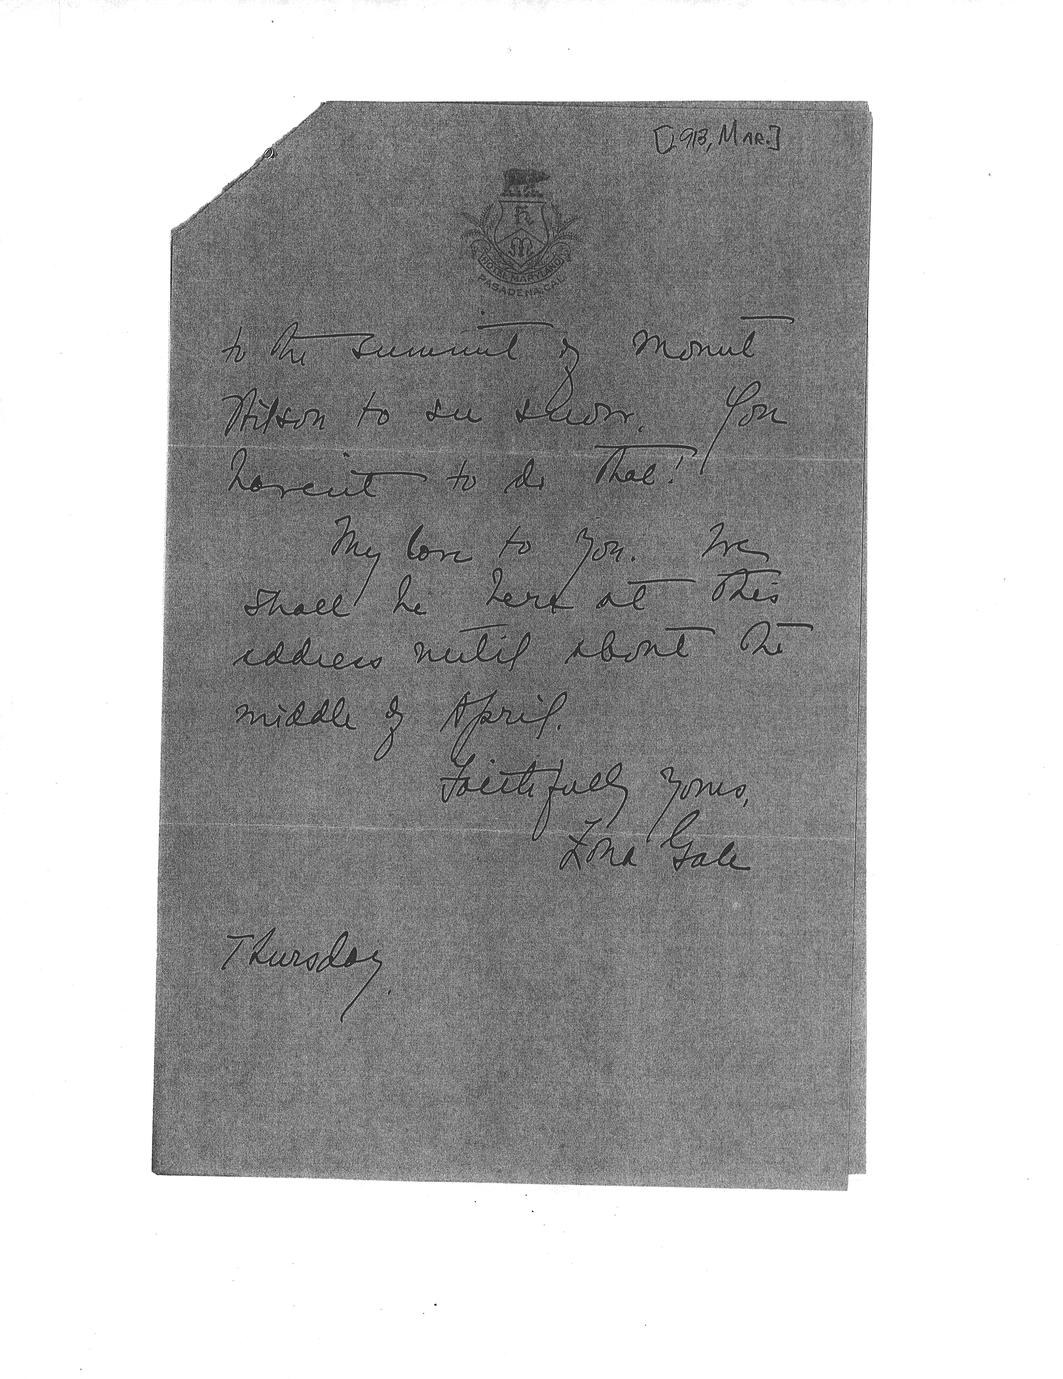 [1913, Mar.]
HOTEL MARYLAND
PASADENA, CAL.
to the summit of Mount
Wilson to see snow. You
haven't to do that!
My love to you. We
shall be here at this
address until about the
middle of April.
Faithfully yours,
Zona Gale
Thursday.